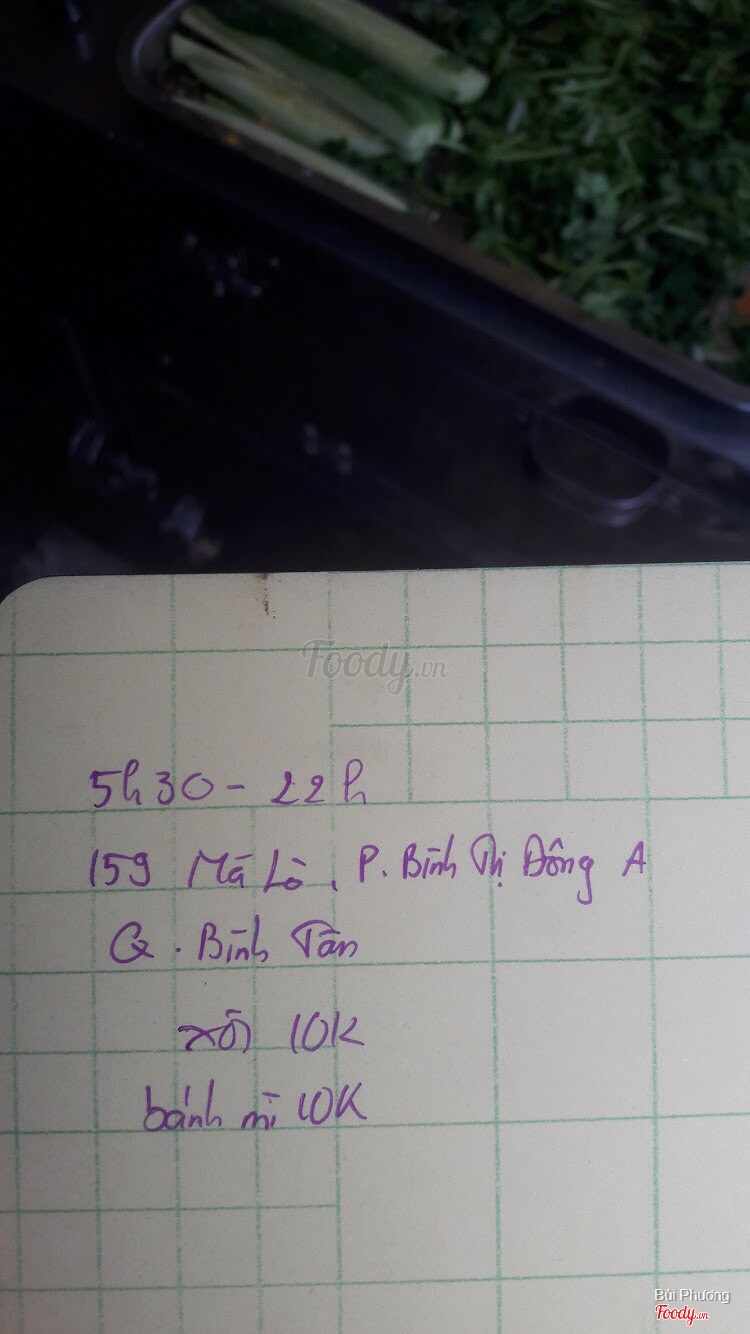 Foody.vn
5h30 - 22h
159 Mã Lò, P. Bình Thị Đông A
Q. Bình Tân
xôi 10K
bánh mì 10K
Bùi Phương
Foody.vn